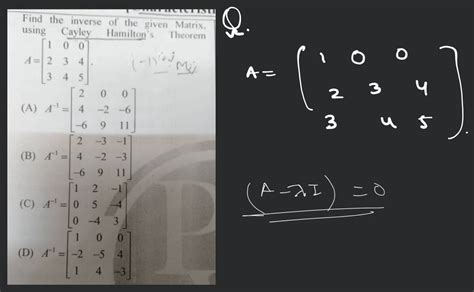 Find the inverse of the given Matrix.
using Cayley Hamilton's Theorem
A = [1 0 0
2 3 4
3 4 5].
(A) A⁻¹ = [2 0 0
4 -2 -6
-6 9 11]
(B) A⁻¹ = [2 -3 -1
4 -2 -3
-6 9 11]
(C) A⁻¹ = [1 2 -1
0 5 -4
0 -4 3]
(D) A⁻¹ = [1 0 0
-2 -5 4
1 4 -3]
Q.
A = (1 0 0
2 3 4
3 4 5).
(A - λI) = 0